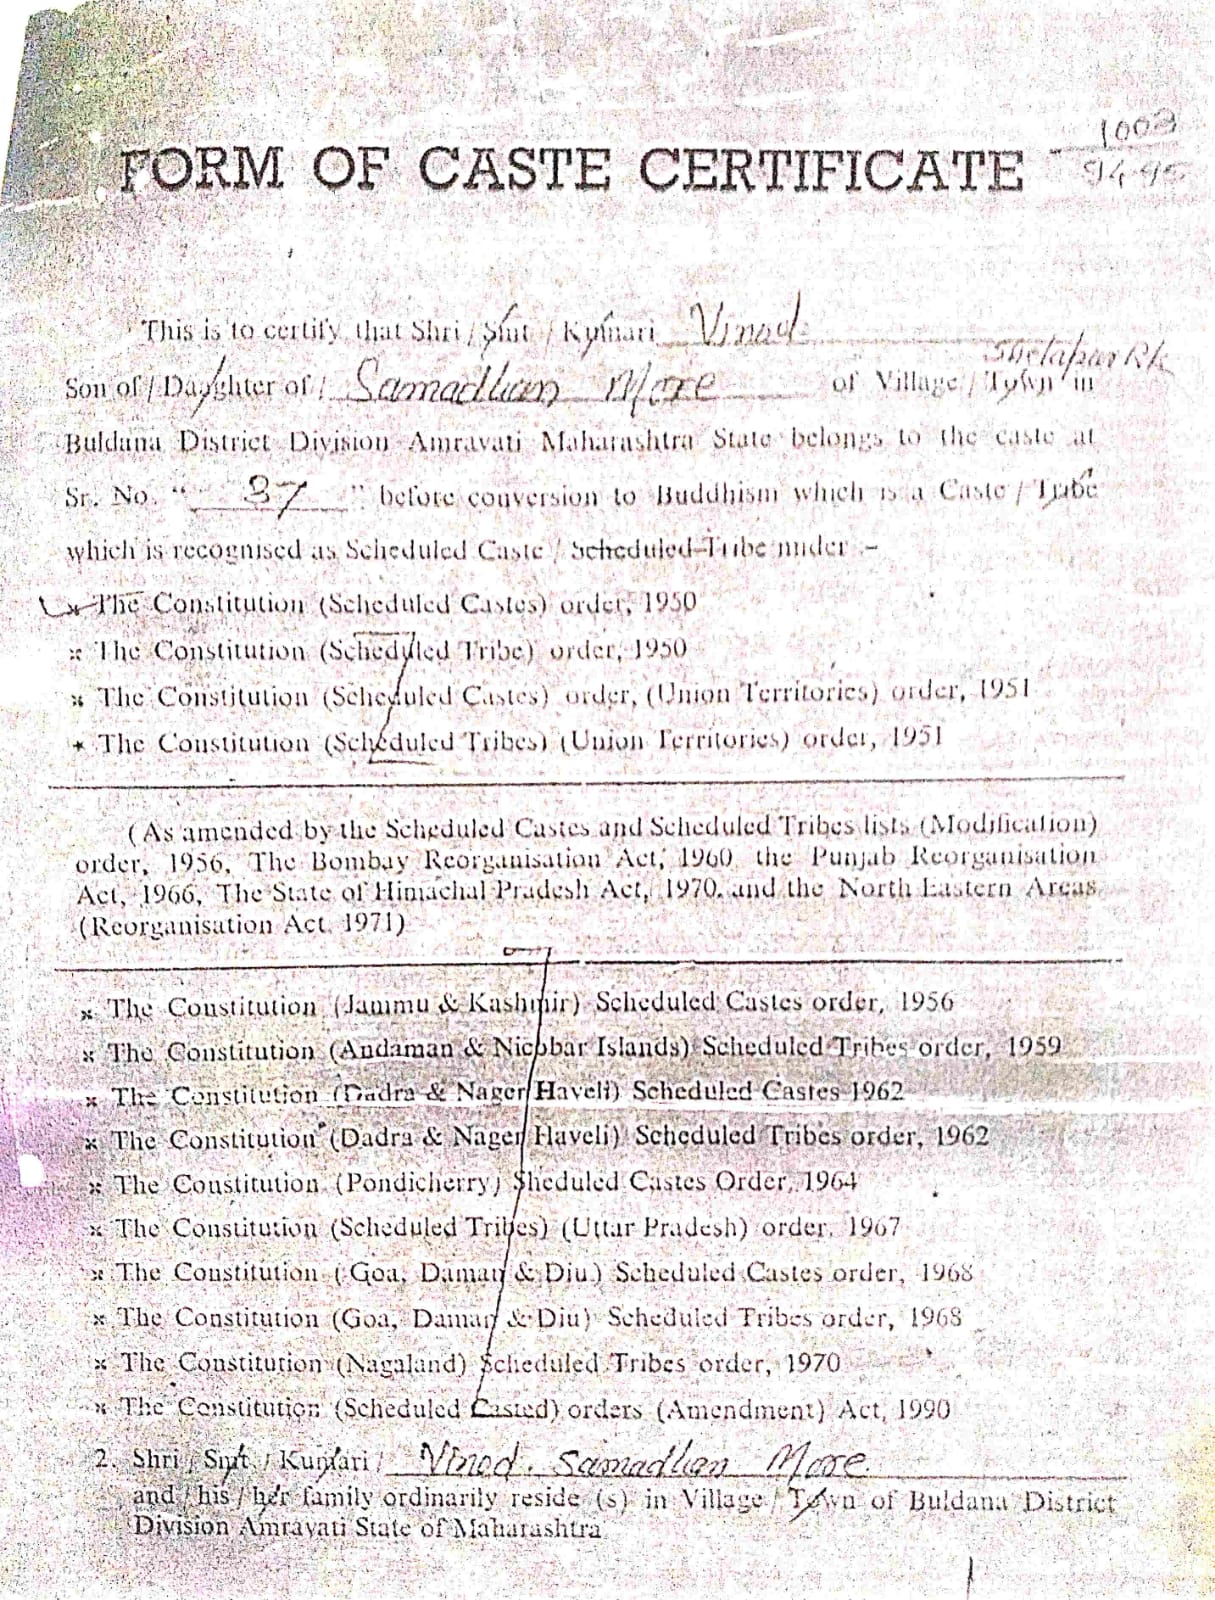 1003
94-95
FORM OF CASTE CERTIFICATE
This is to certify that Shri / Smt / Kumari Vinod
Shelapur Rk
Son of / Daughter of / Samadhan More of Village / Town in
Buldana District Division Amravati Maharashtra State belongs to the caste at
Sr. No. " 37 " before conversion to Buddhism which is a Caste / Tribe
which is recognised as Scheduled Caste / Scheduled Tribe under :-
* The Constitution (Scheduled Castes) order, 1950
* The Constitution (Scheduled Tribe) order, 1950
* The Constitution (Scheduled Castes) order, (Union Territories) order, 1951
* The Constitution (Scheduled Tribes) (Union Territories) order, 1951
(As amended by the Scheduled Castes and Scheduled Tribes lists (Modification)
order, 1956, The Bombay Reorganisation Act, 1960, the Punjab Reorganisation
Act, 1966, The State of Himachal Pradesh Act, 1970, and the North Eastern Areas
(Reorganisation Act, 1971)
* The Constitution (Jammu & Kashmir) Scheduled Castes order, 1956
* The Constitution (Andaman & Nicobar Islands) Scheduled Tribes order, 1959
* The Constitution (Dadra & Nager Haveli) Scheduled Castes 1962
* The Constitution (Dadra & Nager Haveli) Scheduled Tribes order, 1962
* The Constitution (Pondicherry) Sheduled Castes Order, 1964
* The Constitution (Scheduled Tribes) (Uttar Pradesh) order, 1967
* The Constitution ( Goa, Daman & Diu ) Scheduled Castes order, 1968
* The Constitution (Goa, Daman & Diu) Scheduled Tribes order, 1968
* The Constitution (Nagaland) Scheduled Tribes order, 1970
* The Constitution (Scheduled Casted) orders (Amendment) Act, 1990
2. Shri / Smt. / Kumari / Vinod. Samadhan More.
and / his / her family ordinarily reside (s) in Village / Town of Buldana District
Division Amravati State of Maharashtra